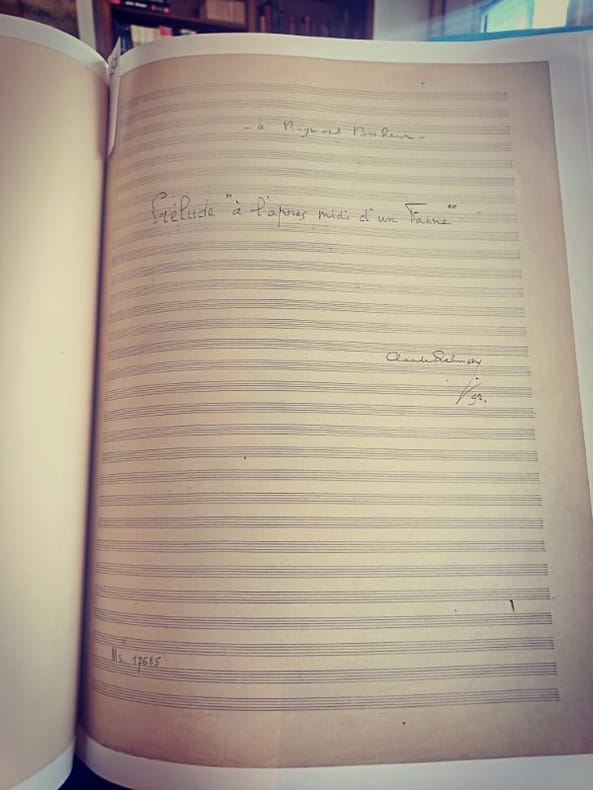 - à Raymond Bonheur -
Prélude "à l'après midi d'un Faune"
Claude Debussy
/92.
Ms. 17685